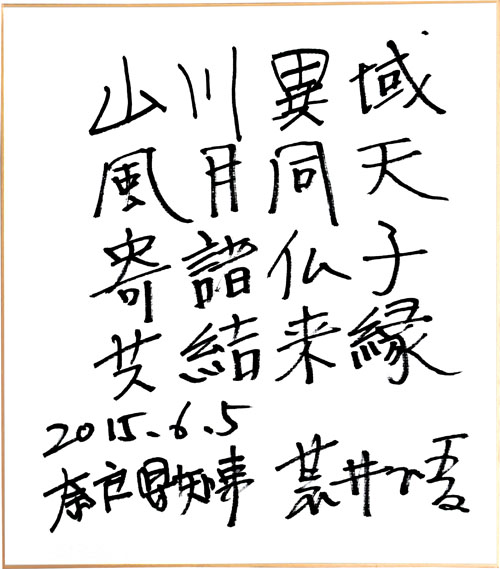 山川異域
風月同天
寄諸仏子
共結来縁
2015.6.5
奈良県知事 荒井正吾